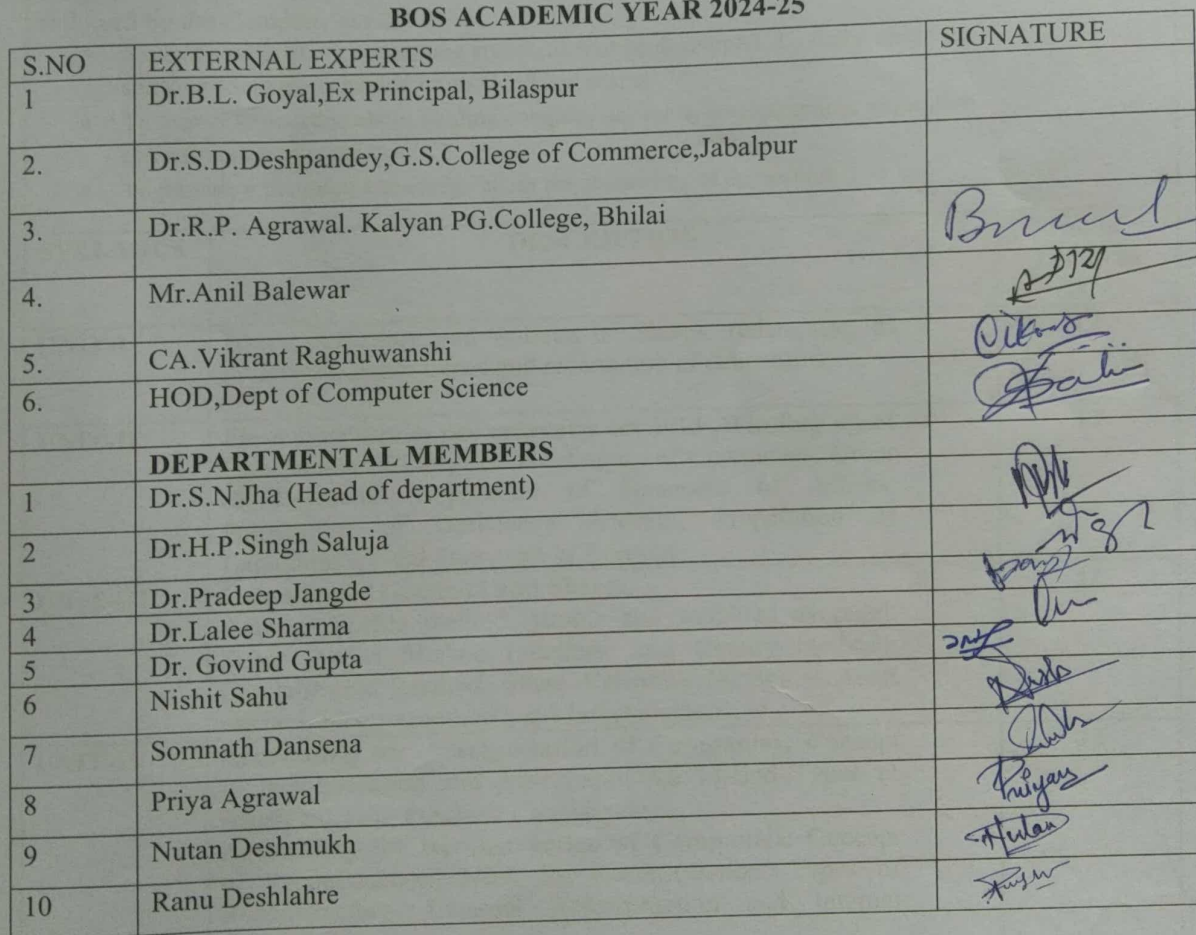 BOS ACADEMIC YEAR 2024-25
S.NO EXTERNAL EXPERTS SIGNATURE
1 Dr.B.L. Goyal,Ex Principal, Bilaspur
2. Dr.S.D.Deshpandey,G.S.College of Commerce,Jabalpur
3. Dr.R.P. Agrawal. Kalyan PG.College, Bhilai
4. Mr.Anil Balewar
5. CA.Vikrant Raghuwanshi
6. HOD,Dept of Computer Science
DEPARTMENTAL MEMBERS
1 Dr.S.N.Jha (Head of department)
2 Dr.H.P.Singh Saluja
3 Dr.Pradeep Jangde
4 Dr.Lalee Sharma
5 Dr. Govind Gupta
6 Nishit Sahu
7 Somnath Dansena
8 Priya Agrawal
9 Nutan Deshmukh Nutan
10 Ranu Deshlahre